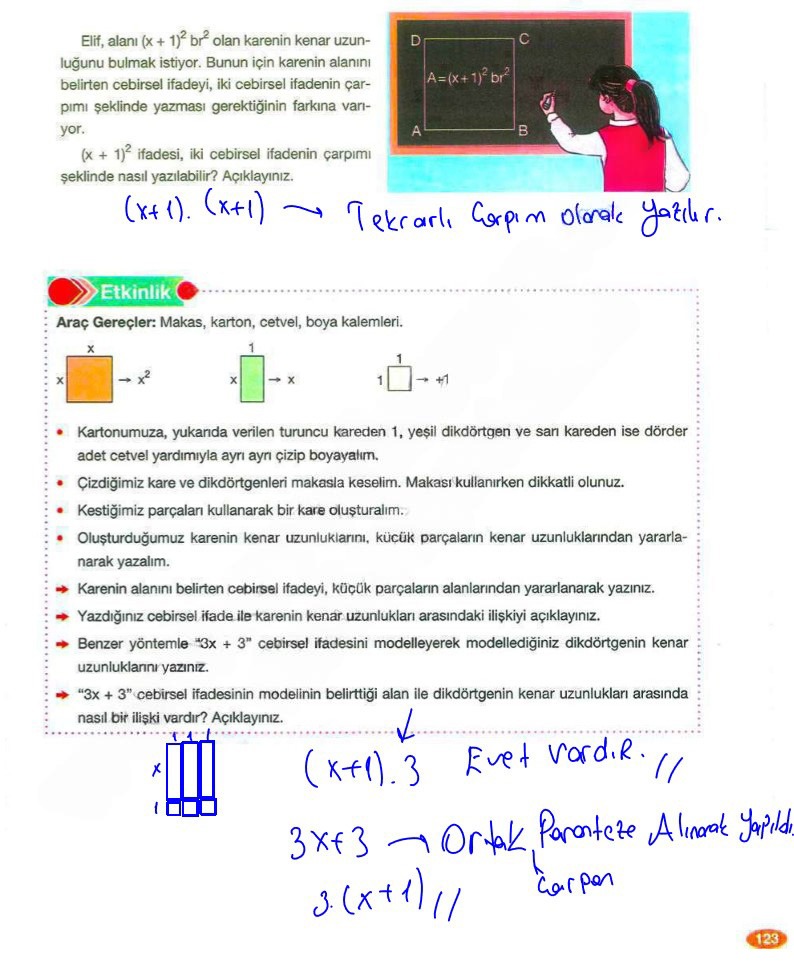 Elif, alanı (x + 1)² br² olan karenin kenar uzun-
luğunu bulmak istiyor. Bunun için karenin alanını
belirten cebirsel ifadeyi, iki cebirsel ifadenin çar-
pımı şeklinde yazması gerektiğinin farkına varı-
yor.
(x + 1)² ifadesi, iki cebirsel ifadenin çarpımı
şeklinde nasıl yazılabilir? Açıklayınız.
D C
A=(x+1)² br²
A B
(x+1).(x+1) → Tekrarlı Çarpım olarak Yazılır.
Etkinlik
Araç Gereçler: Makas, karton, cetvel, boya kalemleri.
x 1 1
x → x² x → x 1 → +1
• Kartonumuza, yukarıda verilen turuncu kareden 1, yeşil dikdörtgen ve sarı kareden ise dörder
adet cetvel yardımıyla ayrı ayrı çizip boyayalım.
• Çizdiğimiz kare ve dikdörtgenleri makasla keselim. Makası kullanırken dikkatli olunuz.
• Kestiğimiz parçaları kullanarak bir kare oluşturalım.
• Oluşturduğumuz karenin kenar uzunluklarını, küçük parçaların kenar uzunluklarından yararla-
narak yazalım.
➔ Karenin alanını belirten cebirsel ifadeyi, küçük parçaların alanlarından yararlanarak yazınız.
➔ Yazdığınız cebirsel ifade ile karenin kenar uzunlukları arasındaki ilişkiyi açıklayınız.
➔ Benzer yöntemle "3x + 3" cebirsel ifadesini modelleyerek modellediğiniz dikdörtgenin kenar
uzunluklarını yazınız.
➔ "3x + 3" cebirsel ifadesinin modelinin belirttiği alan ile dikdörtgenin kenar uzunlukları arasında
nasıl bir ilişki vardır? Açıklayınız.
1 1 1
x
1
(x+1).3 Evet vardır. //
3x+3 → Ortak Paranteze Alınarak Yapıldı.
Çarpan
3.(x+1) //
123